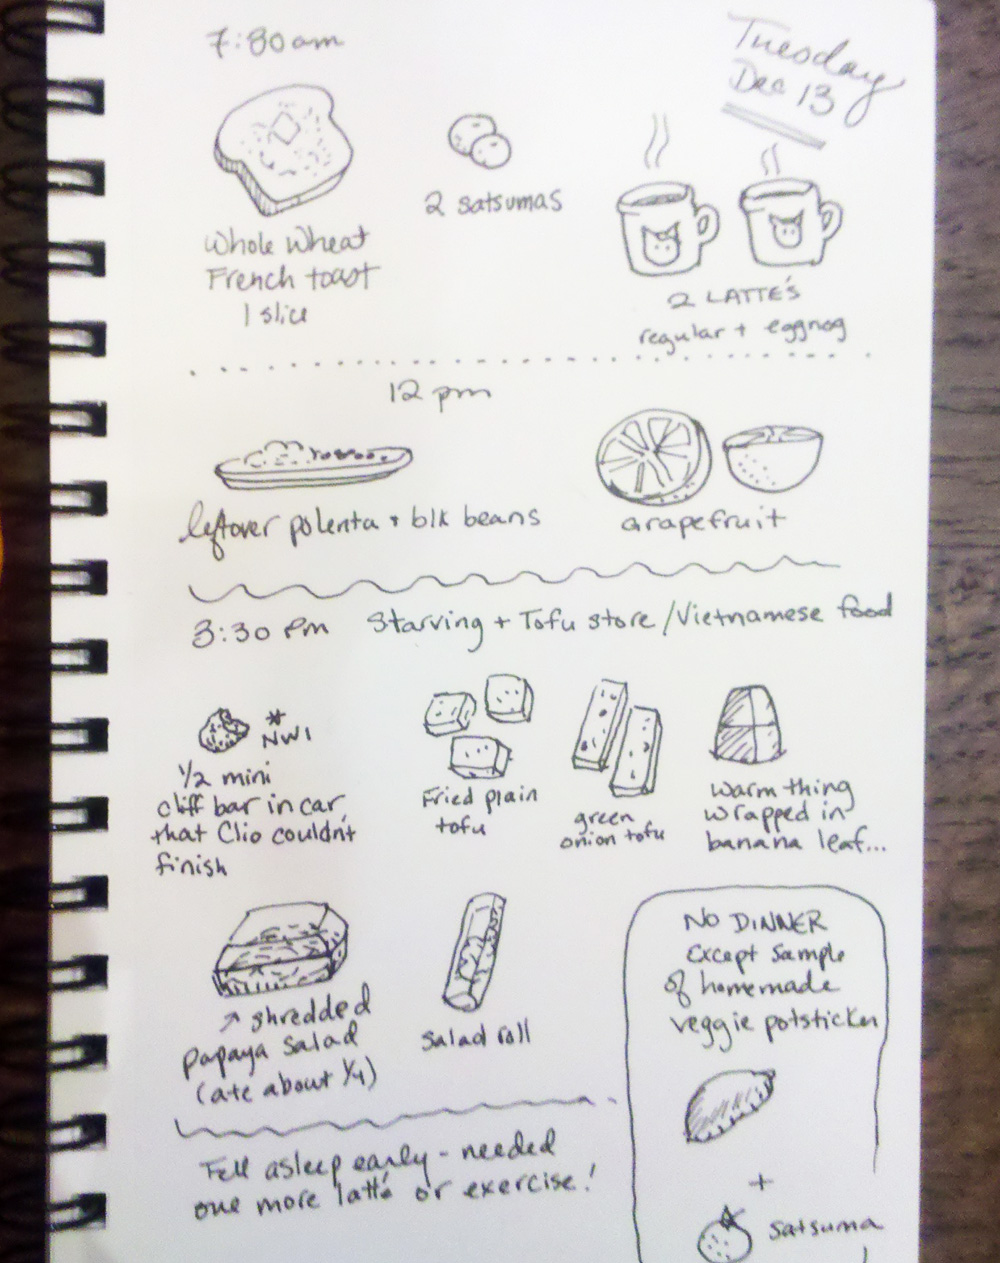 7:30am
Tuesday
Dec 13
Whole Wheat
French toast
1 slice
2 satsumas
2 LATTE'S
regular + eggnog
12 pm
leftover polenta + blk beans
Grapefruit
3:30 pm Starving + Tofu store/Vietnamese food
* NW1
1/2 mini
cliff bar in car,
that Clio couldn't
finish
Fried plain
tofu
green
onion tofu
warm thing
wrapped in
banana leaf...
↗ shredded
papaya salad
(ate about 1/4)
Salad roll
NO DINNER
Except sample
of homemade
veggie potsticker
+
satsuma
Fell asleep early - needed
one more latté or exercise!